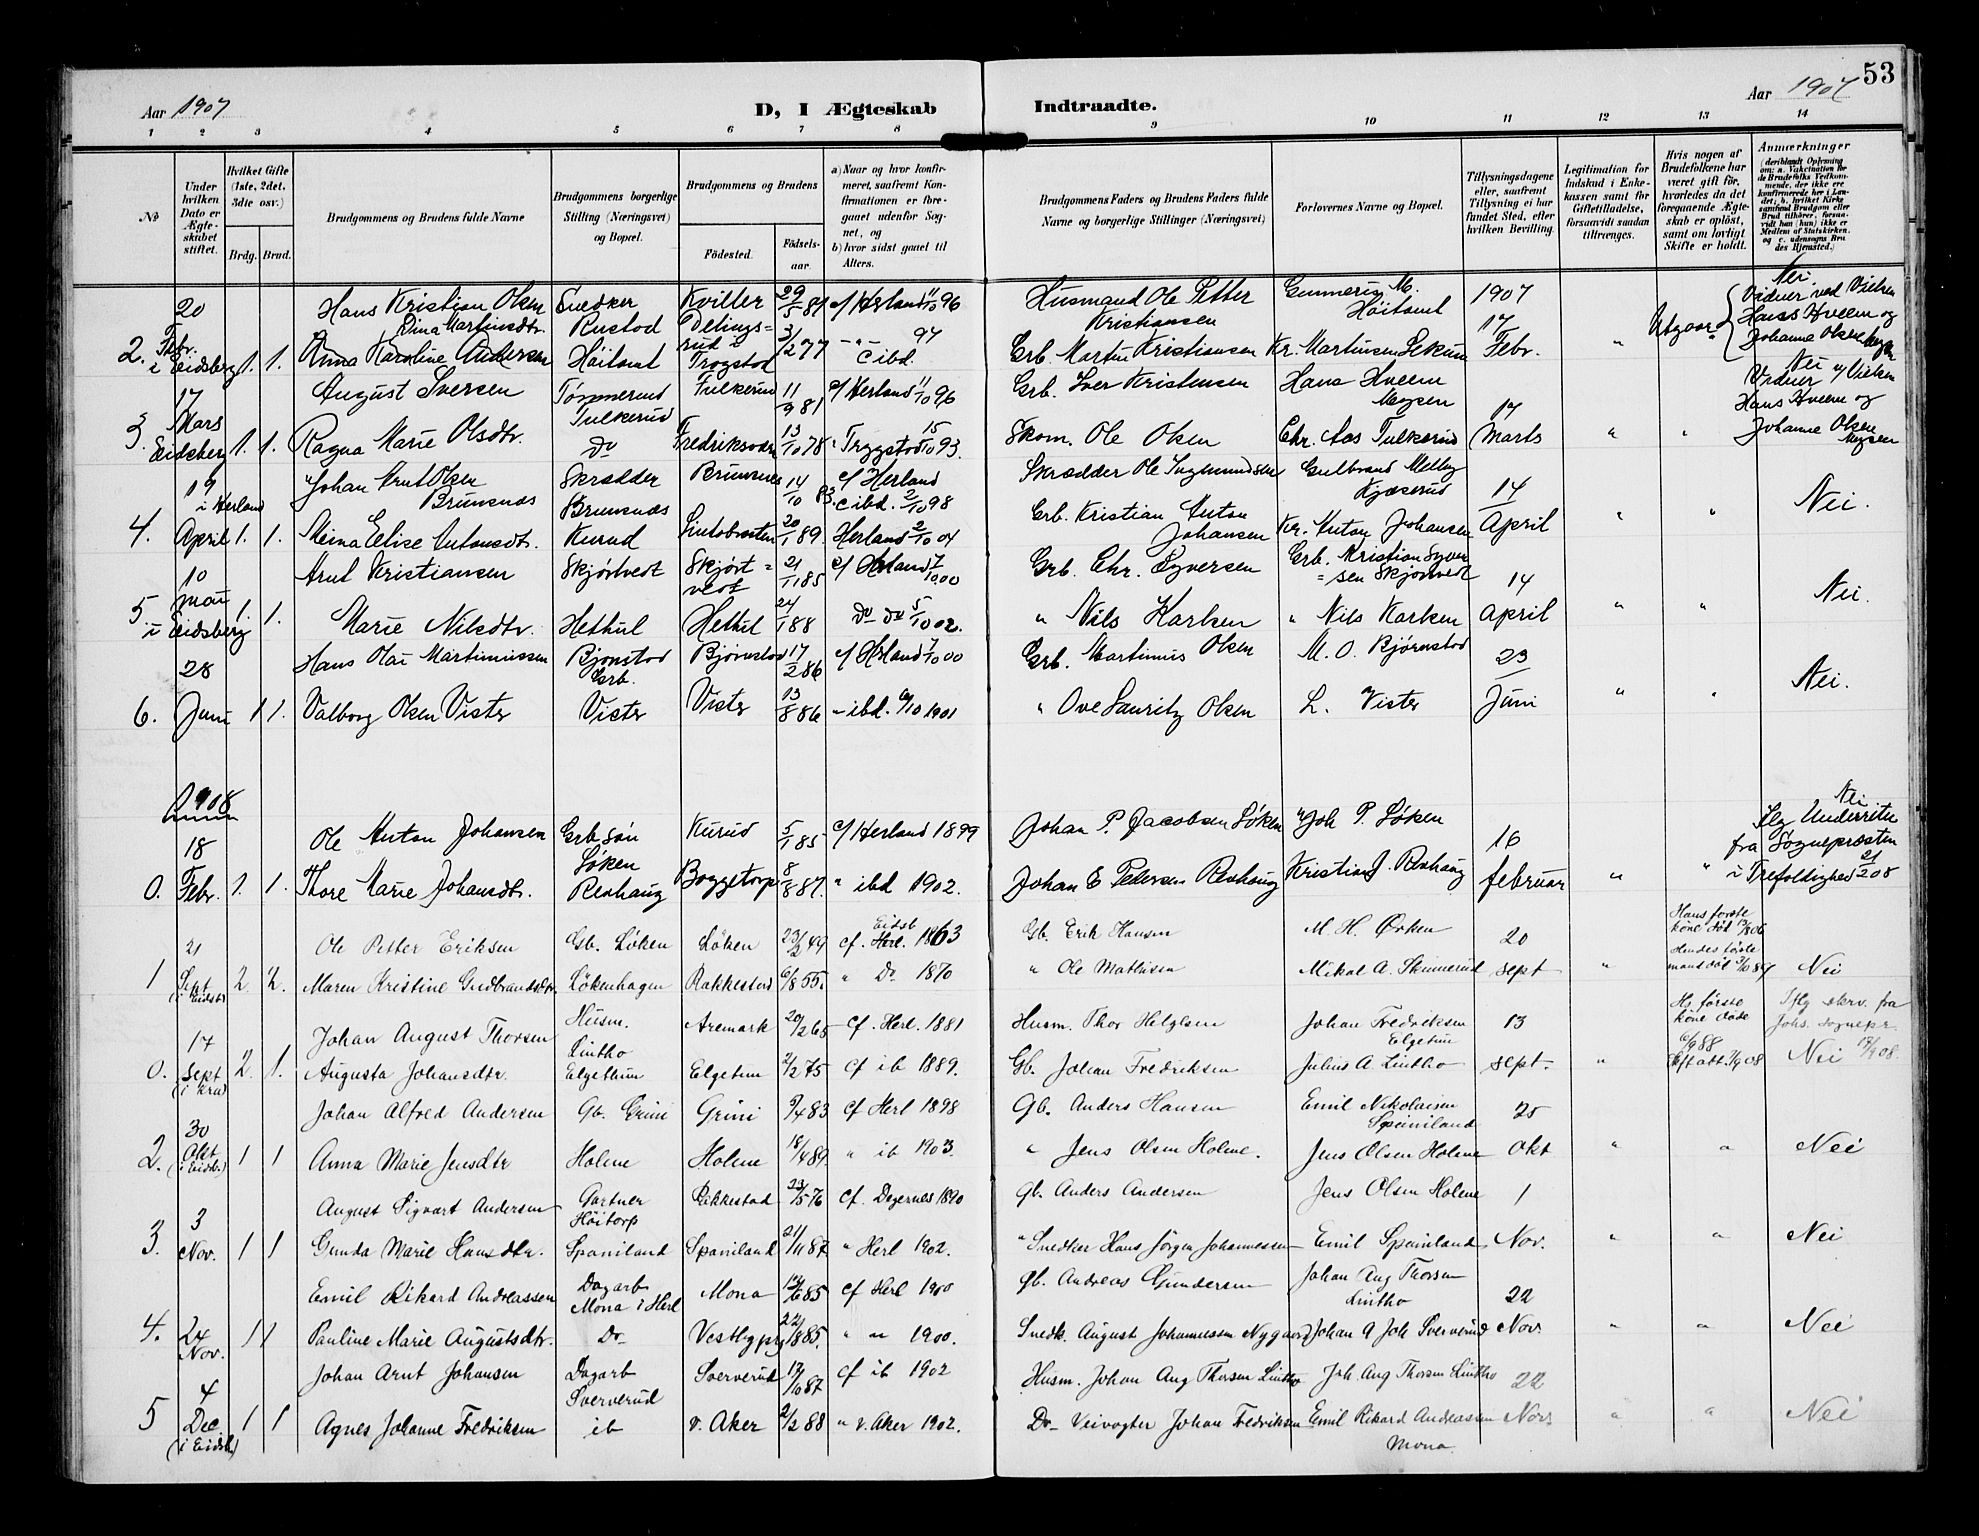 53
Aar 1907
D, I Ægteskab Indtraadte.
Aar 1907
1 2 3 4 5 6 7 8 9 10 11 12 13 14
No
Under hvilken Dato er Ægteskabet stiftet.
Hvilket Gifte (1ste, 2det, 3die osv.)
Brdg. Brud.
Brudgommens og Brudens fulde Navne
Brudgommens borgerlige Stilling (Næringsvei) og Bopæl.
Brudgommens og Brudens
Fødested.
Fødselsaar.
a) Naar og hvor konfirmeret, saafremt Konfirmationen er foregaaet udenfor Sognet, og
b) hvor sidst gaaet til Alters.
Brudgommens Faders og Brudens Faders fulde Navne og borgerlige Stillinger (Næringsvei)
Forlovernes Navne og Bopæl.
Tillysningsdagene eller, saafremt Tillysning ei har fundet Sted, efter hvilken Bevilling.
Legitimation for Indskud i Enkekassen samt for Giftetilladelse, forsaavidt saadan tiltrænges.
Hvis nogen af Brudefolkene har været gift før, hvorledes da det foregaaende Ægteskab er opløst, samt om lovligt Skifte er holdt.
Anmærkninger
20 Hans Kristian Olsen Snedker Kviller 29/5 81 c/ Herland 11/10 96 Husmand Ole Petter Kristiansen Gunnerius M. Høitomt 1907 Nei
2. Febr. i Eidsberg 1. 1. Anna Karoline Andersen Dina Martinsdtr. Rustad Høitomt Trøgstad 3/2 77 97 ibd. Grb. Martin Kristiansen Kr. Martinsen Sekum 17 Febr. " Utgaar Vidner ved Vielsen Hans Hveem og Johanne Olsen
17 August Iversen Tømmermd Tulkerud 11/9 81 c/ Herland 11/10 96 Grb. Iver Kristensen Hans Hveem Mysen 17 Nei Vidner v/ Vielsen
3. Mars Eidsberg 1. 1. Ragna Marie Olsdtr. do Fredriksværn 13/10 78 " Trygstad 15/10 93. Skom. Ole Olsen Chr. Aas Tulkerud Marts " " Hans Hveem og Johanne Olsen Mysen
19 i Herland Johan Arnt Olsen Brunsnæs Skrædder Brunsnes 14/10 83. c/ Herland 2/10 98 Skrædder Ole Ingemundsen Gulbrand Melleby 14
4. April 1. 1. Meina Elise Antonsdtr. Kurud 20/1 89. Herland 2/10 04 Grb. Kristian Anton Johansen Kr. Anton Johansen April " " Nei.
10 Arnt Kristiansen Skjørtvedt Skjørtvedt 21/1 85 c/ Herland 7/10 00 Grb. Chr. Syversen Grb. Kristian Syversen Skjørtvedt 14
5. mai i Eidsberg 1. 1. Marie Nilsdtr. Hethul Hethul 24/1 88 do do 5/10 02. " Nils Karlsen " Nils Karlsen April " " Nei.
28 Hans Olai Martinussen Bjønstad Grb. Bjørnstad 17/2 86 c/ Herland 7/10 00 Grb. Martinus Olsen M. O. Bjørnstad 23
6. Juni 1 1. Valborg Olsen Vister Vister Vister 13/8 86 " ibd. 6/10 1901 " Ove Lauritz Olsen L. Vister Juni " " Nei.
1908
18 Ole Anton Johansen Grb.søn Løken Kurud 5/1 85 c/ Herland 1899 Johan P. Jacobsen Løken Joh P. Løken 16 Nei
0. Febr. 1. 1. Thore Marie Johansdtr. Renhaug Boggetorp 8/8 87. " ibd 1902. Johan E Pedersen Renhaug Kristian J. Renhaug februar " " Ifg Underretn fra Sogneprosten i Trefoldighed 21/2 08
21 Ole Petter Eriksen Gb. Løken Løken 23/2 49 cf. Eidsb Herl. 1863 Gb. Erik Hansen M. H. Ørken 20 Hans første kone død
1 Sept (i Eidsb) 2. 2. Maren Kristine Gudbrandsdtr. Løkenhagen Rakkestad 6/8 55. " Do 1870 " Ole Mathisen Mikal A. Skinnerud sept " Hendes første mand død Nei
17 Johan August Thorsen Husm. Lintho Aremark 20/2 65 cf. Herl. 1881 Husm. Thor Helgesen Johan Fredriksen Elgetun 13 Hs første kone døde
0. sept (i Kra) 2. 1. Augusta Johansdtr. Elgethun Elgetun 2/2 75 cf ib 1889. Gb. Johan Fredriksen Julius A. Lintho sept. " Nei
30 Johan Alfred Andersen Gb. Grini Grini 5/4 83 cf Herl 1898 Gb. Anders Hansen Emil Nikolaisen Spæniland 25
2. Okt (i Eidsb.) 1 1 Anna Marie Jensdtr Holene Holene 18/4 89. " ib 1903. " Jens Olsen Holene. Jens Olsen Holene Okt " " Nei
3 August Sigvart Andersen Gartner Høitorp Rakkestad 23/5 76 cf. Degernes 1890 Gb. Anders Andersen Jens Olsen Holene 1
3. Nov. 1 1 Gunda Marie Hansdtr. Spæniland Spæniland 21/11 87 " Herl 1902. " Snedker Hans Jörgen Johannessen Emil Spæniland Nov. " " Nei
Emil Rikard Andreassen Dagarb Mona i Herl Mona 85 cf Herl 1900 Gb. Andreas Gundersen Johan Aug Thorsen Lintho 22
4. 24 Nov. 1 1 Pauline Marie Augustsdtr. Do Vestbygg 22/1 85. " " 1900. Snedk. August Johannessen Nygaard Johan A Joh Sververud Nov. " " Nei
4 Johan Arnt Johansen Dagarb Sververud Sververud 13/10 87 cf ib 1902 Husm. Johan Aug Thorsen Lintho Joh Aug Thorsen Lintho 22
5 Dec (i Eidsb.) 1 1 Agnes Johanne Fredriksen ib v. Aker 2/2 88 " v. Aker 1902. Do Veivogter Johan Fredriksen Emil Rikard Andreassen Mona Nov " " Nei